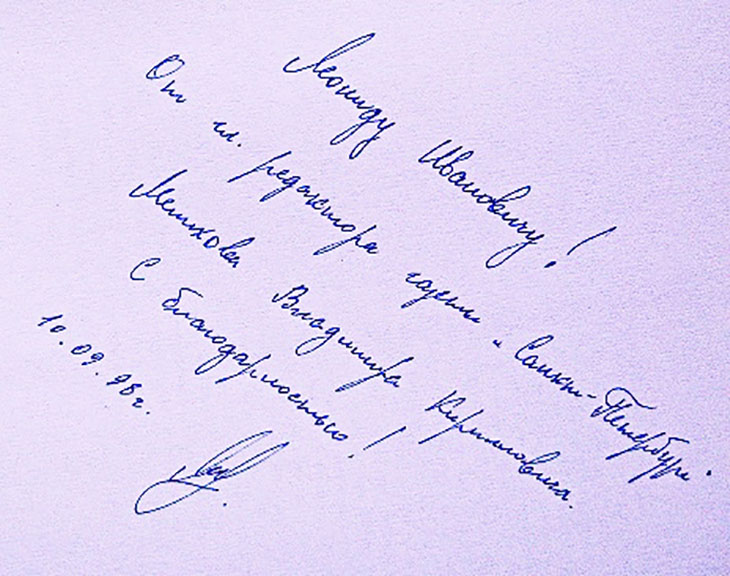 Леониду Ивановичу!
От гл. редактора газеты "Санкт-Петербург"
Владимира Кирилловича.
С благодарностью!
10.09.98г.